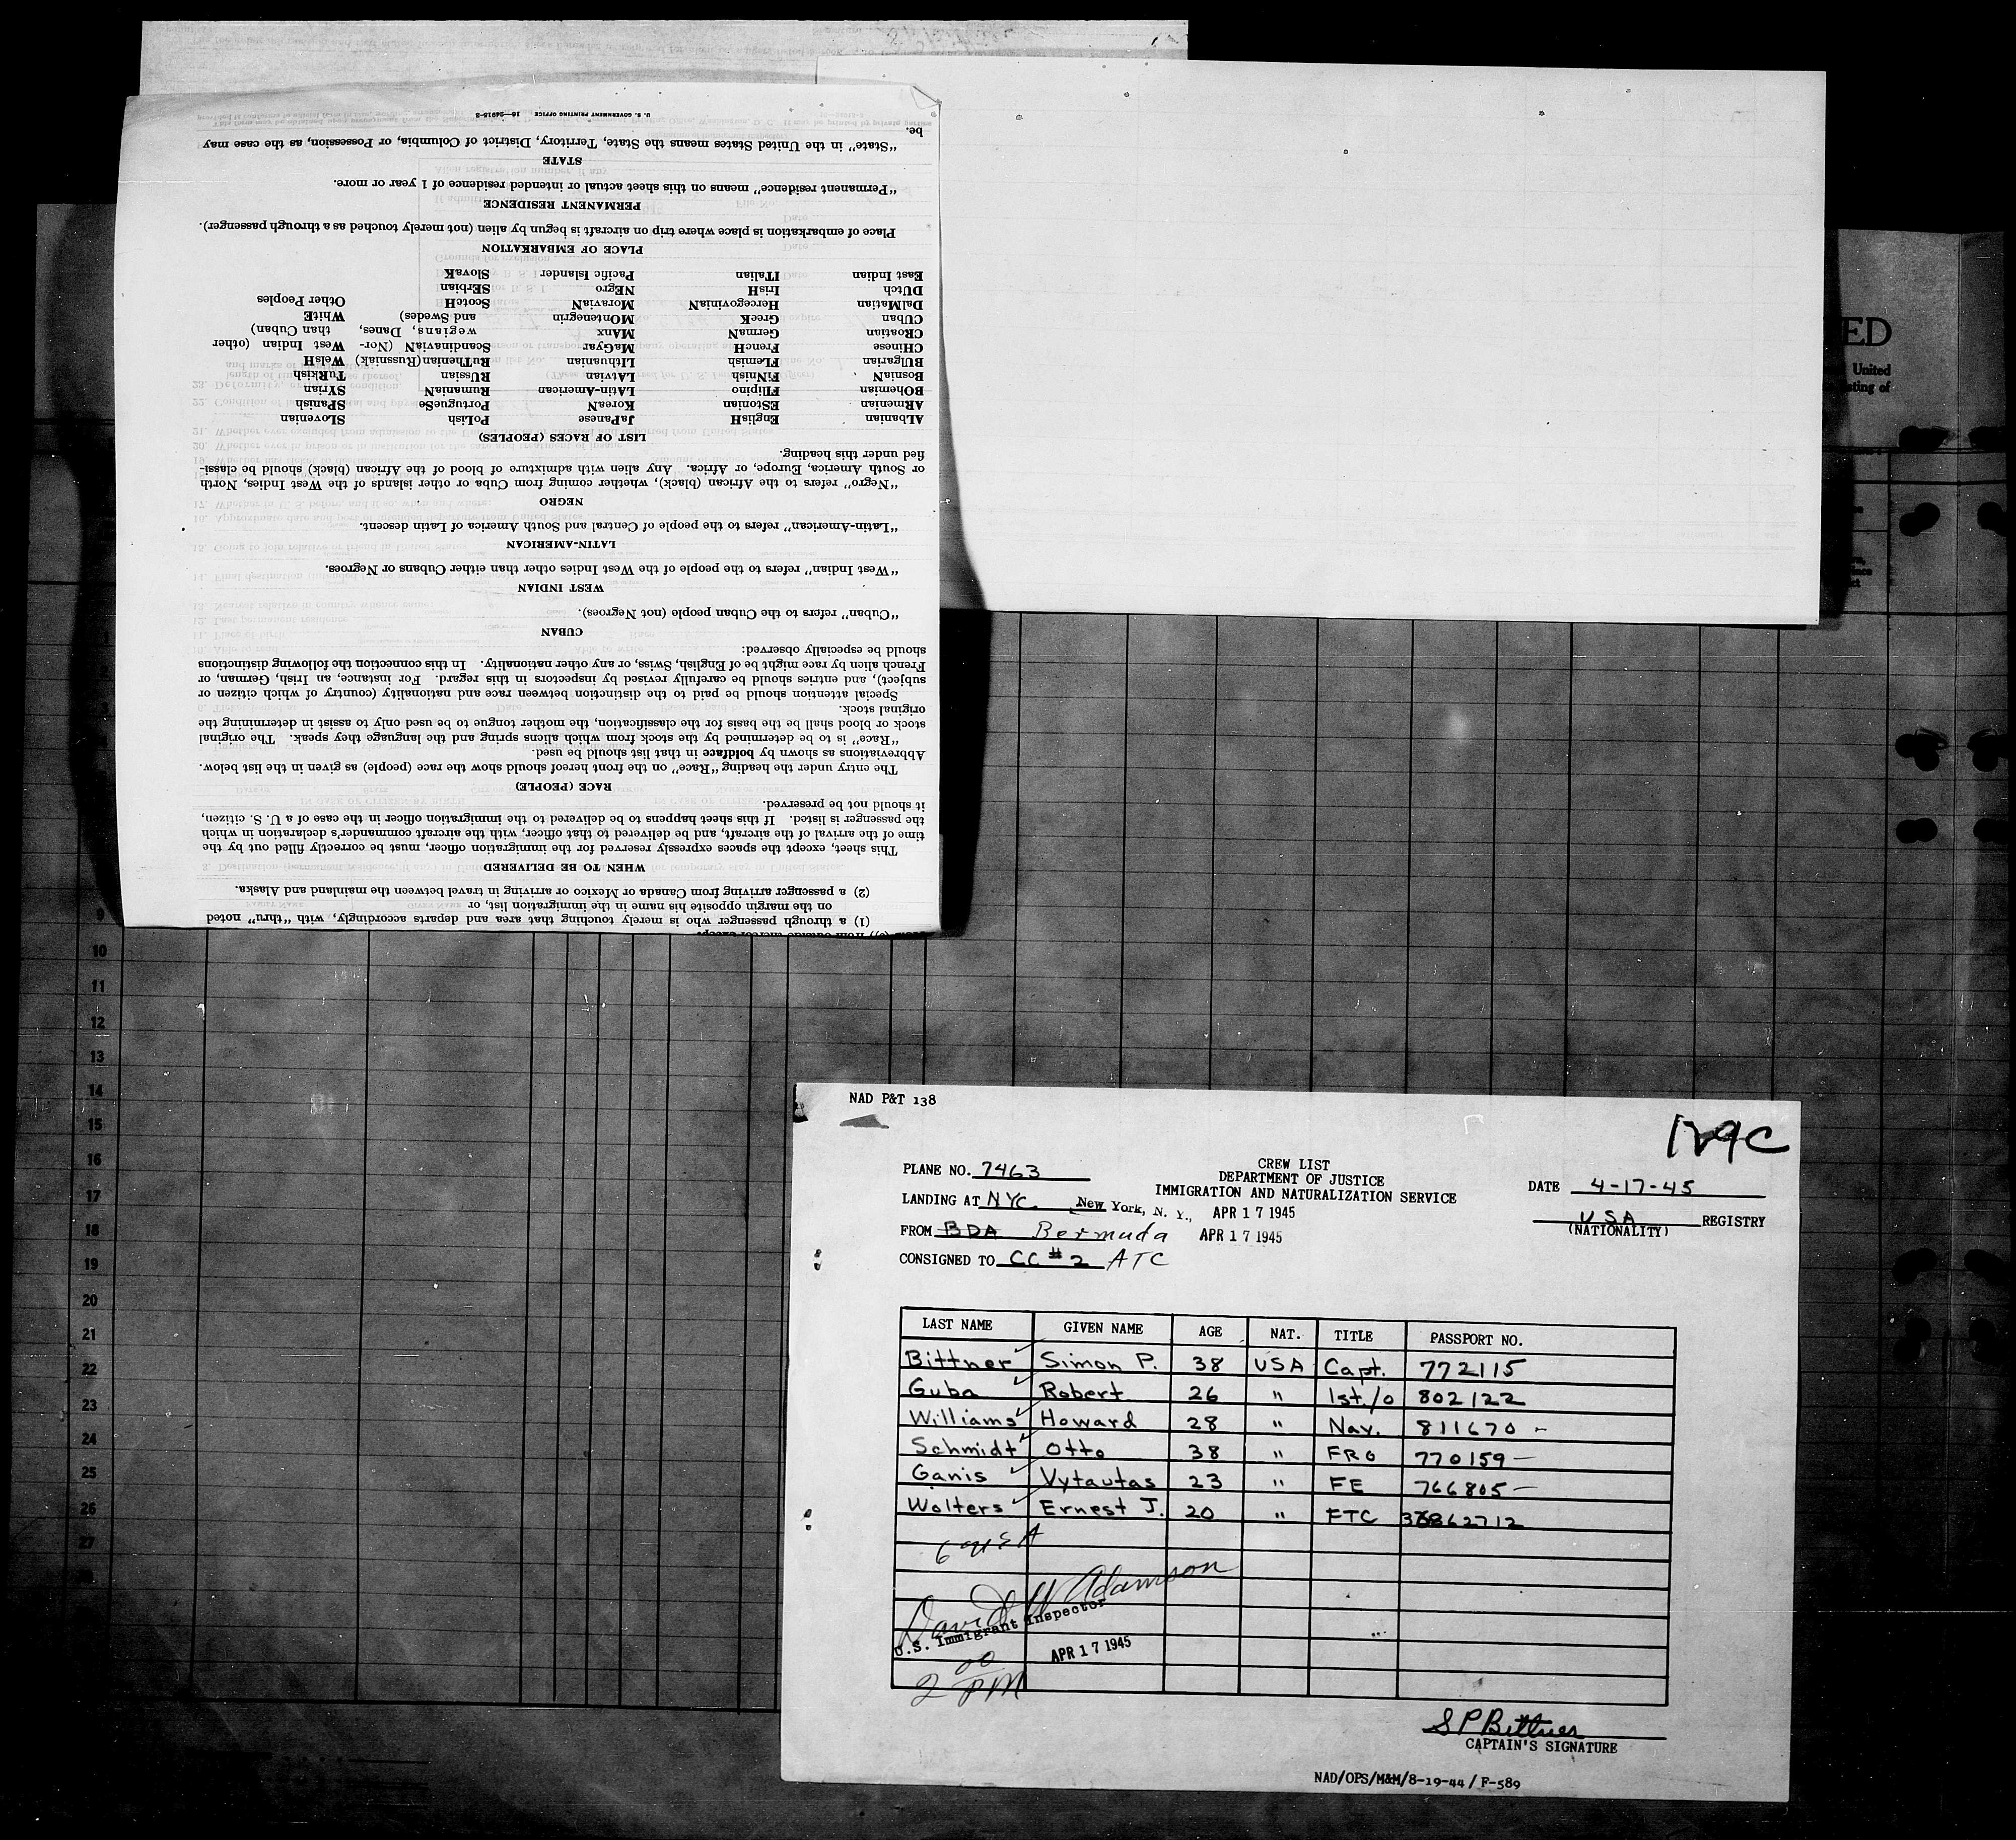 U. S. GOVERNMENT PRINTING OFFICE 16—24915-3
(1) a through passenger who is merely touching that area and departs accordingly, with “thru” noted
on the margin opposite his name in the immigration list, or
(2) a passenger arriving from Canada or Mexico or arriving in travel between the mainland and Alaska.
WHEN TO BE DELIVERED
This sheet, except the spaces expressly reserved for the immigration officer, must be correctly filled out by the
time of the arrival of the aircraft, and be delivered to that officer, with the aircraft commander’s declaration in which
the passenger is listed. If this sheet happens to be delivered to the immigration officer in the case of a U. S. citizen,
it should not be preserved.
RACE (PEOPLE)
The entry under the heading “Race” on the front hereof should show the race (people) as given in the list below.
Abbreviations as shown by boldface in that list should be used.
“Race” is to be determined by the stock from which aliens spring and the language they speak. The original
stock or blood shall be the basis for the classification, the mother tongue to be used only to assist in determining the
original stock.
Special attention should be paid to the distinction between race and nationality (country of which citizen or
subject), and entries should be carefully revised by inspectors in this regard. For instance, an Irish, German, or
French alien by race might be of English, Swiss, or any other nationality. In this connection the following distinctions
should be especially observed:
CUBAN
“Cuban” refers to the Cuban people (not Negroes).
WEST INDIAN
“West Indian” refers to the people of the West Indies other than either Cubans or Negroes.
LATIN-AMERICAN
“Latin-American” refers to the people of Central and South America of Latin descent.
NEGRO
“Negro” refers to the African (black), whether coming from Cuba or other islands of the West Indies, North
or South America, Europe, or Africa. Any alien with admixture of blood of the African (black) should be classi-
fied under this heading.
LIST OF RACES (PEOPLES)
ALbanian EnglisH JaPanese PoLish SLovenian
ARmenian EStonian KoreaN PortugueSe SPanish
BOhemian FIlipino LAtin-American RumaniaN SYrian
BosniaN FiNnish LAtvian RUssian TuRkish
BUlgarian FLemish LIthuanian RuThenian (Russniak) WelsH
CHinese FrencH MaGyar ScandinaviaN (Nor- West Indian (other
CRoatian GermaN MAnx wegians, Danes, than Cuban)
CUban GreeK MOntenegrin and Swedes) WhitE
DalMatian HercegoviniaN MoraviaN ScotcH Other Peoples
DUtch IrisH NEgro SErbian
East Indian ITalian Pacific Islander SlovaK
PLACE OF EMBARKATION
Place of embarkation is place where trip on aircraft is begun by alien (not merely touched as a through passenger).
PERMANENT RESIDENCE
“Permanent residence” means on this sheet actual or intended residence of 1 year or more.
STATE
“State” in the United States means the State, Territory, District of Columbia, or Possession, as the case may
be.
ED
United
9
10
11
12
13
14
15
16
17
18
19
20
21
22
23
24
25
26
27
NAD P&T 138
129C
CREW LIST
DEPARTMENT OF JUSTICE
IMMIGRATION AND NATURALIZATION SERVICE
PLANE NO. 7463
DATE 4-17-45
LANDING AT NYC New York, N. Y., APR 17 1945
USA REGISTRY
(NATIONALITY)
FROM BDA Bermuda APR 17 1945
CONSIGNED TO CC #2 ATC
LAST NAME GIVEN NAME AGE NAT. TITLE PASSPORT NO.
Bittner Simon P. 38 USA Capt. 772115
Guba Robert 26 " 1st/o 802122
Williams Howard 28 " Nav. 811670 -
Schmidt Otto 38 " FRO 770159 -
Ganis Vytautas 23 " FE 766805 -
Wolters Ernest J. 20 " FTC 36862712
6 USA
David W Adamson
U.S. Immigrant Inspector
APR 17 1945
2 00 PM
S P Bittner
CAPTAIN'S SIGNATURE
NAD/OPS/M&M/8-19-44 / F-589